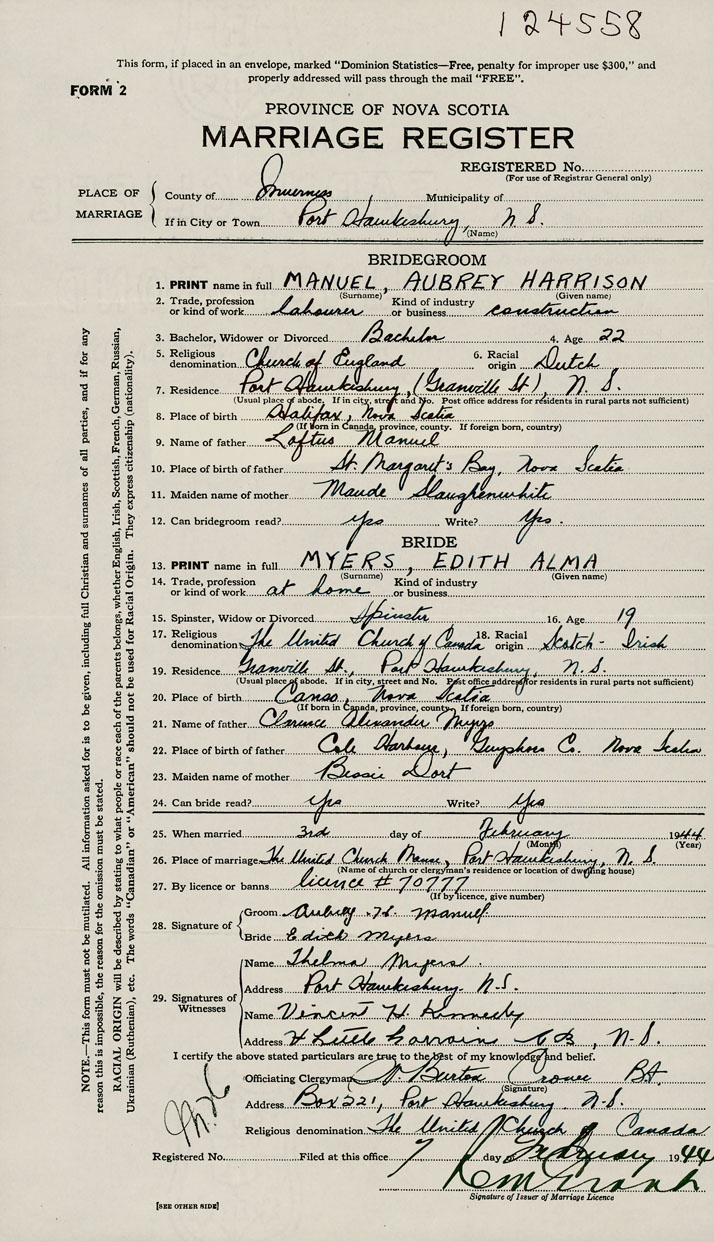 124558
This form, if placed in an envelope, marked "Dominion Statistics—Free, penalty for improper use $300," and
properly addressed will pass through the mail "FREE".
FORM 2
PROVINCE OF NOVA SCOTIA
MARRIAGE REGISTER
REGISTERED No.
(For use of Registrar General only)
PLACE OF MARRIAGE
County of Inverness Municipality of
If in City or Town Port Hawkesbury, N. S.
(Name)
BRIDEGROOM
1. PRINT name in full MANUEL, AUBREY HARRISON
(Surname) (Given name)
2. Trade, profession or kind of work labourer Kind of industry or business construction
3. Bachelor, Widower or Divorced Bachelor 4. Age 22
5. Religious denomination Church of England 6. Racial origin Dutch
7. Residence Port Hawkesbury, (Granville St), N. S.
(Usual place of abode. If in city, street and No. Post office address for residents in rural parts not sufficient)
8. Place of birth Halifax, Nova Scotia
(If born in Canada, province, county. If foreign born, country)
9. Name of father Loftus Manuel
10. Place of birth of father St. Margaret's Bay, Nova Scotia
11. Maiden name of mother Maude Slaughenwhite
12. Can bridegroom read? yes Write? Yes.
BRIDE
13. PRINT name in full MYERS, EDITH ALMA
(Surname) (Given name)
14. Trade, profession or kind of work at home Kind of industry or business
15. Spinster, Widow or Divorced Spinster 16. Age 19
17. Religious denomination The United Church of Canada 18. Racial origin Scotch - Irish
19. Residence Granville St., Port Hawkesbury, N. S.
(Usual place of abode. If in city, street and No. Post office address for residents in rural parts not sufficient)
20. Place of birth Canso, Nova Scotia
(If born in Canada, province, county. If foreign born, country)
21. Name of father Clarence Alexander Myers
22. Place of birth of father Cole Harbour, Guysboro Co. Nova Scotia
23. Maiden name of mother Bessie Dort
24. Can bride read? Yes Write? Yes
25. When married 3rd day of February 1944
(Month) (Year)
26. Place of marriage The United Church Manse, Port Hawkesbury, N. S.
(Name of church or clergyman's residence or location of dwelling house)
27. By licence or banns licence # 70777
(If by licence, give number)
28. Signature of
Groom Aubrey H. Manuel
Bride Edith Myers
29. Signatures of Witnesses
Name Thelma Myers.
Address Port Hawkesbury N.S.
Name Vincent H. Kennedy
Address Little Lorraine C B, N.S.
I certify the above stated particulars are true to the best of my knowledge and belief.
Officiating Clergyman Burton BA.
(Signature)
Address Box 221, Port Hawkesbury N.S.
Religious denomination The United Church of Canada
Registered No. Filed at this office 7 day February 1944
Signature of Issuer of Marriage Licence
[SEE OTHER SIDE]
NOTE.—This form must not be mutilated. All information asked for is to be given, including full Christian and surnames of all parties, and if for any
reason this is impossible, the reason for the omission must be stated.
RACIAL ORIGIN will be described by stating to what people or race each of the parents belongs, whether English, Irish, Scottish, French, German, Russian,
Ukrainian (Ruthenian), etc. The words "Canadian" or "American" should not be used for Racial Origin. They express citizenship (nationality).